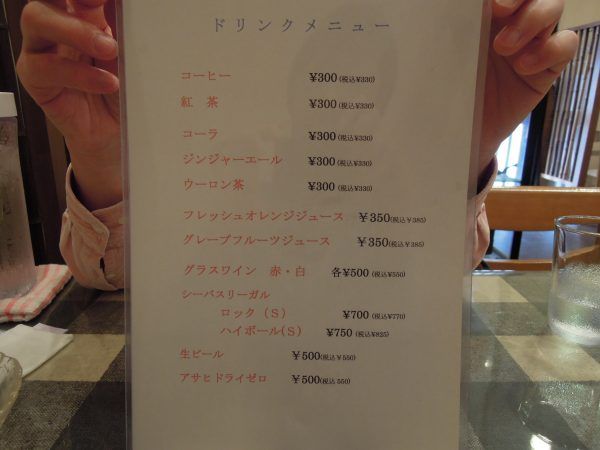 ドリンクメニュー
コーヒー ¥300(税込¥330)
紅 茶 ¥300(税込¥330)
コーラ ¥300(税込¥330)
ジンジャーエール ¥300(税込¥330)
ウーロン茶 ¥300(税込¥330)
フレッシュオレンジジュース ¥350(税込¥385)
グレープフルーツジュース ¥350(税込¥385)
グラスワイン 赤・白 各¥500(税込¥550)
シーバスリーガル
ロック（S） ¥700(税込¥770)
ハイボール(S) ¥750(税込¥825)
生ビール ¥500(税込¥550)
アサヒドライゼロ ¥500(税込 550)